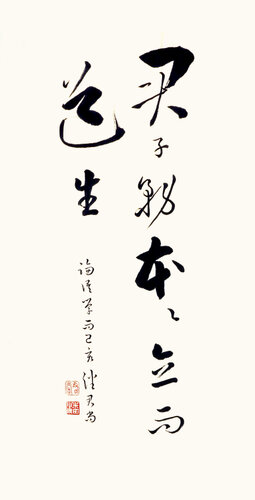 君子務本〻立而
道生
論語學而己亥